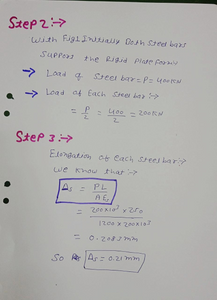 Step 2:→
With Fig, Initially Both Steel bars
Support the Rigid Plateform
→ Load of Steel bar = P = 400KN
→ Load of Each Steel bar:→
= P/2 = 400/2 = 200KN
Step 3:→
Elongation of Each Steel bar:→
We know that:→
Δs = PL/AE
= 200×10³ × 250 / 1200 × 200×10³
= 0.2083 mm
So Δs = 0.21 mm